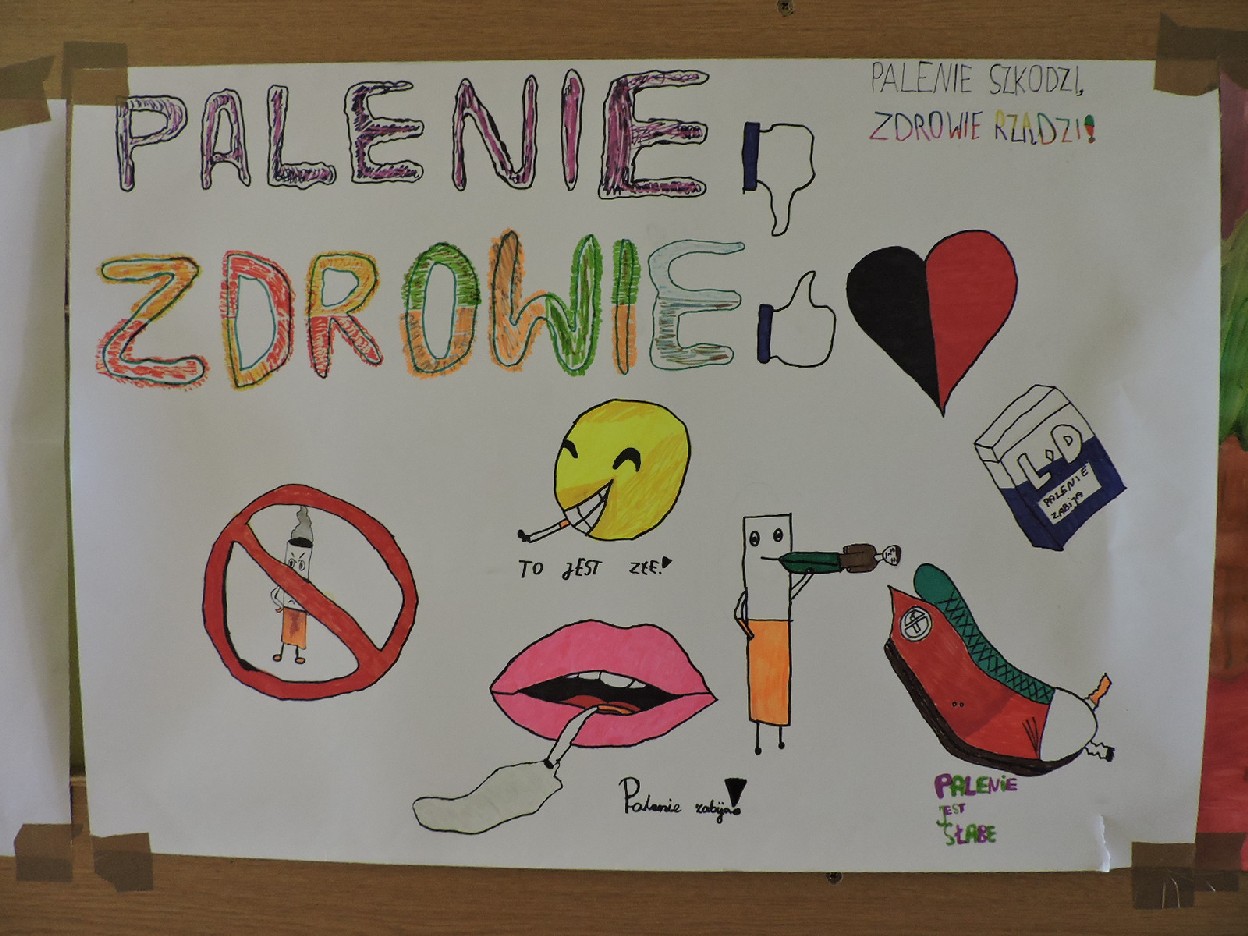 PALENIE
PALENIE SZKODZI,
ZDROWIE RZĄDZI!
ZDROWIE
L&D
PALENIE
ZABIJA
TO JEST ZŁE!
Palenie zabija!
PALENIE
JEST
SŁABE